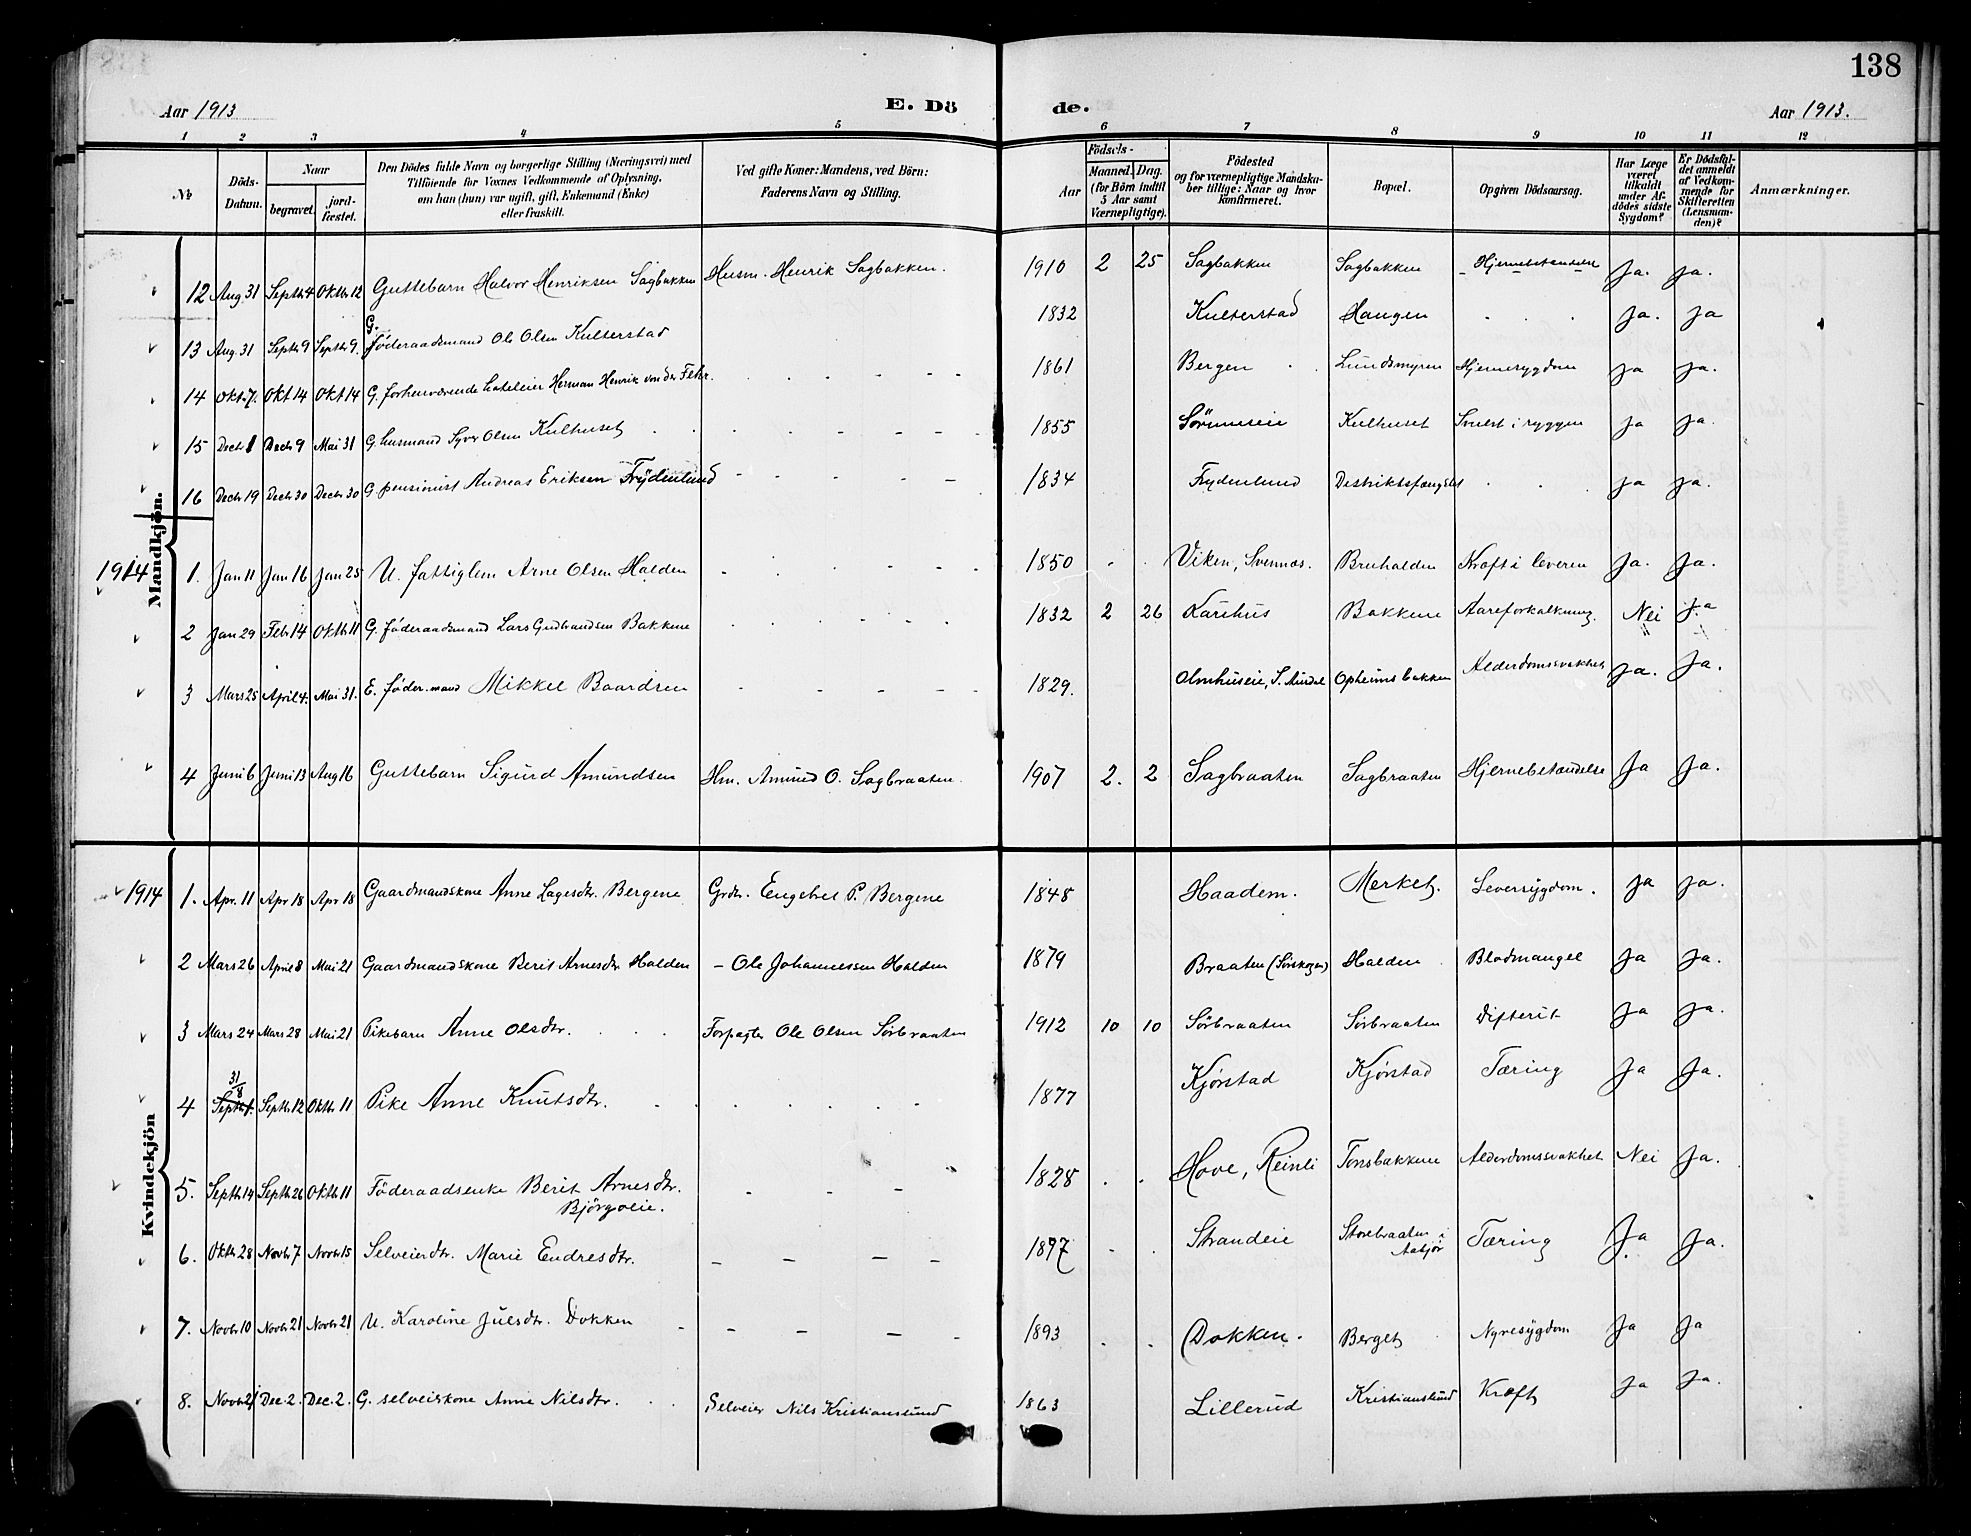 138
Aar 1913
E. Dö
de.
Aar 1913.
1 2 3 4 5 6 7 8 9 10 11 12
No
Döds-Datum.
Naar
begravet.
jord-fæstet.
Den Dödes fulde Navn og borgerlige Stilling (Næringsvei) med
Tilföiende for Voxnes Vedkommende af Oplysning,
om han (hun) var ugift, gift, Enkemand (Enke)
eller fraskilt.
Ved gifte Koner: Mandens, ved Börn:
Faderens Navn og Stilling.
Födsels-
Aar
Maaned. Dag.
(for Börn indtil
5 Aar samt
Værnepligtige).
Födested
og for værnepligtige Mandska-
ber tillige: Naar og hvor
konfirmeret.
Bopæl.
Opgiven Dödsaarsag.
Har Læge
været
tilkaldt
under Af-
dödes sidste
Sygdom?
Er Dödsfal-
det anmeldt
af Vedkom-
mende for
Skifteretten
(Lensman-
den)?
Anmærkninger.
Mandkjön.
12 Aug. 31 Septbr 4 Oktbr 12 Guttebarn Halvor Henriksen Sagbakken Husm. Henrik Sagbakken. 1910 2 25 Sagbakken Sagbakken Hjernebetændelse Ja. Ja.
13 Aug. 31 Septbr 9 Septbr 9. G. föderaadsmand Ole Olsen Kulterstad 1832 Kulterstad Haugen . . . Ja. Ja
14 Okt. 7. Okt 14 Okt 14 G. forhenværende hoteleier Herman Henrik von der Fehr. 1861 Bergen Lundsmyren Hjernesygdom Ja Ja.
15 Decbr 1 Decbr 9 Mai 31 G. husmand Syver Olsen Kulhuset 1855 Sörumseie Kulhuset Svulst i ryggen Ja Ja.
16 Decbr 19 Decbr 30 Decbr 30 G. pensionist Andreas Eriksen Frydenlund 1834 Frydenlund Distriktsfængslet . . Ja Ja.
1914 1. Jan 11 Jan 16 Jan 25 U. fattiglem Arne Olsen Halden 1850 Viken, Svennes. Bruhalden Kræft i leveren Ja. Ja.
2 Jan 29 Febr 14 Oktbr 11 G. föderaadsmand Lars Gudbrandsen Bakkene 1832 2 26 Karihus Bakkene Aareforkalkning. Nei Ja
3 Mars 25 April 4. Mai 31. E. föder.mand Mikkel Baardsen 1829. Olmhuseie, S. Aurdal Opheimsbakken Alderdomssvakhet Ja. Ja.
4 Juni 6 Juni 13 Aug 16 Guttebarn Sigurd Amundsen Hm. Amund O. Sagbraaten 1907 2. 2 Sagbraaten Sagbraaten Hjernebetændelse Ja Ja.
Kvindekjön
1914 1. Apr. 11 Apr 18 Apr 18 Gaardmandskone Anne Lagesdtr. Bergene Grdbr. Engebret P. Bergene 1848 Haadem. Merket. Leversygdom. Ja Ja.
2 Mars 26 April 8 Mai 21 Gaardmandskone Berit Arnesdtr Halden - Ole Johannessen Halden 1879 Braaten (Sörskogen) Halden Blodmangel Ja Ja.
3 Mars 24 Mars 28 Mai 21 Pikebarn Anne Olsdtr. Forpagter Ole Olsen Sörbraaten 1912 10 10 Sörbraaten Sörbraaten Difterit Ja Ja.
4 31/8 Septbr 1. Septbr 12 Oktbr 11 Pike Anne Knutsdtr. 1877 Kjörstad Kjörstad Tæring Ja Ja.
5. Septbr 14 Septbr 26 Oktbr 11 Föderaadsenke Berit Arnesdtr. 1828 Hove, Reinli Tonsbakkene Alderdomssvakhet Nei Ja.
Björgoeie.
6. Oktbr 28 Novbr 7 Novbr 15 Selveierdtr. Marie Endresdtr. 1897 Strandeie Storebraaten i Aasjör Tæring Ja. Ja.
7. Novbr 10 Novbr 21 Novbr 21 U. Karoline Julsdtr. Dokken 1893 Dokken. Berget Nyresygdom Ja Ja
8. Novbr 21 Dec. 2. Dec. 2. G. selveierkone Anne Nilsdtr. Selveier Nils Kristianslund 1863 Lillerud Kristianslund Kræft Ja Ja.